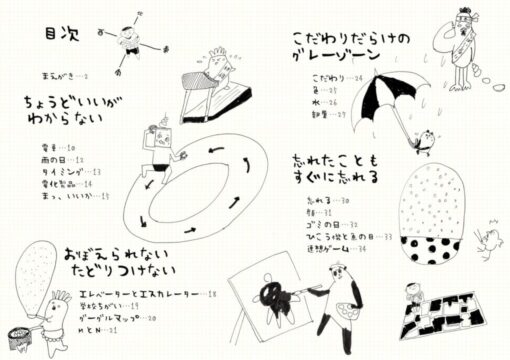 目次
まえがき…2
ちょうどいいが
わからない
電車…10
雨の日…12
タイミング…13
電化製品…14
まっ、いいか…15
おぼえられない
たどりつけない
エレベーターとエスカレーター…18
学校ちがい…19
グーグルマップ…20
MとN…21
こだわりだらけの
グレーゾーン
こだわり…24
魚…25
水…26
部屋…27
忘れたことも
すぐに忘れる
忘れる…30
顔…31
ゴミの日…32
ひこう機と魚の目…33
連想ゲーム…34